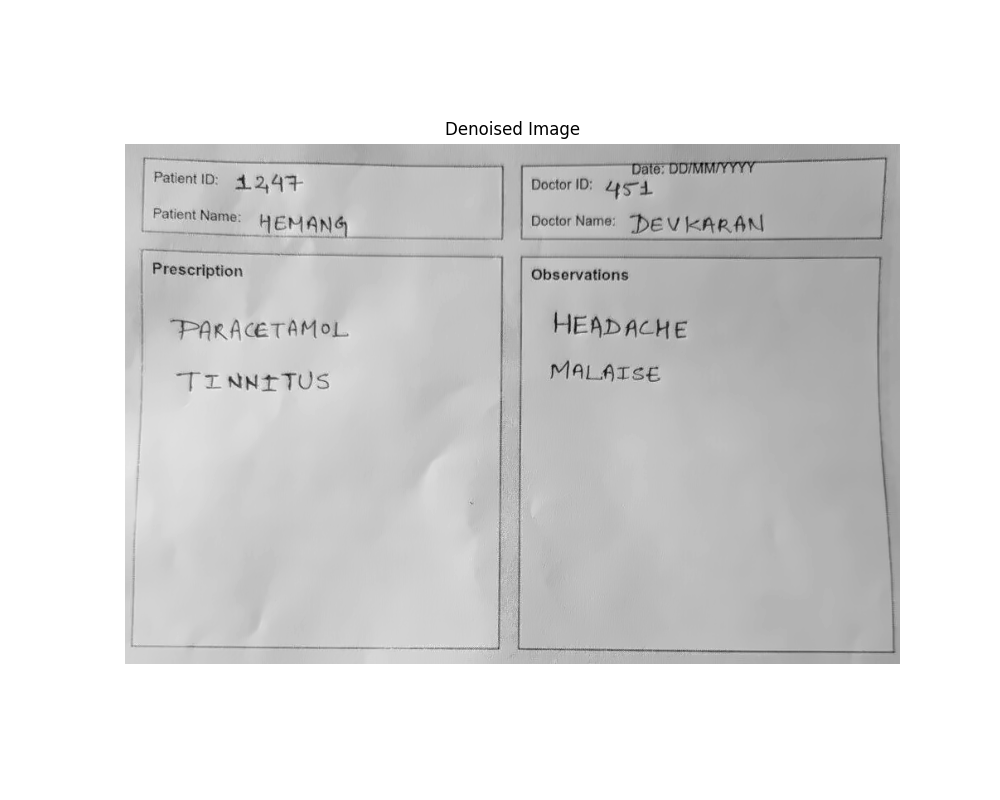 Denoised Image
Patient ID: 1247
Patient Name: HEMANG
Date: DD/MM/YYYY
Doctor ID: 451
Doctor Name: DEVKARAN
Prescription
PARACETAMOL
TINNITUS
Observations
HEADACHE
MALAISE